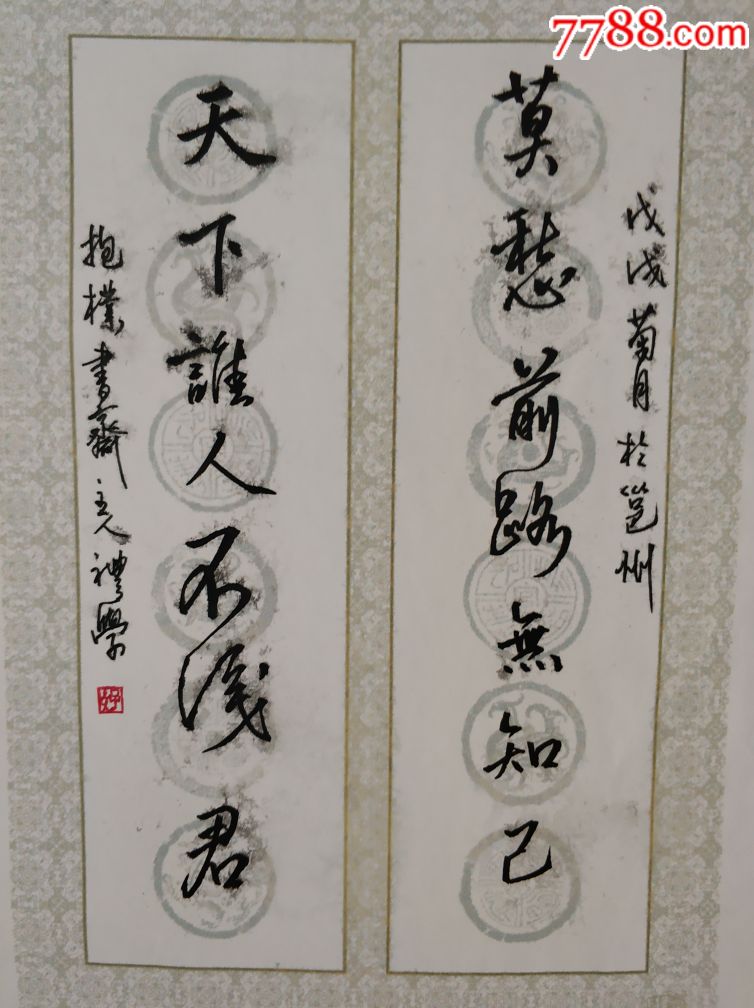 7788.com
戊戌菊月於邕州
莫愁前路無知己
天下誰人不識君
抱樸書齋主人禮學